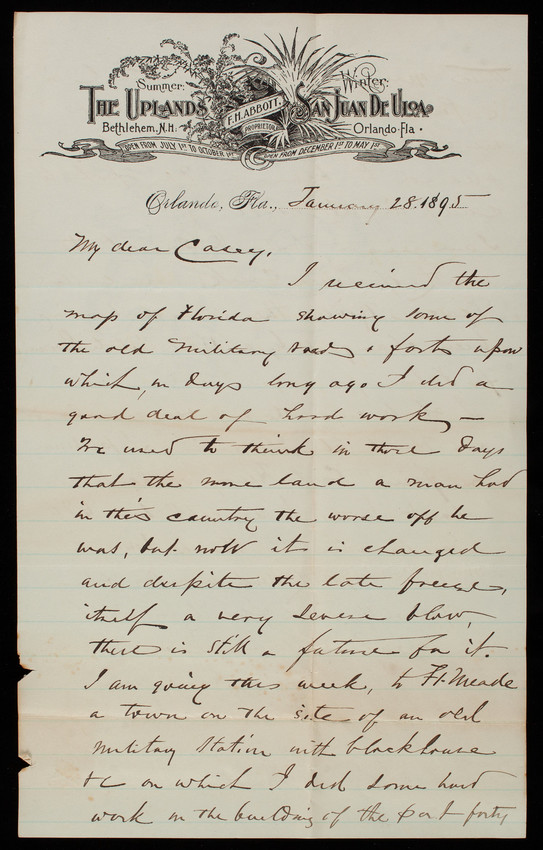 Summer.
Winter.
THE UPLANDS
F.H. ABBOTT,
PROPRIETOR.
SAN JUAN DE ULOA
Bethlehem, N.H.
Orlando-Fla.
OPEN FROM JULY 1ST TO OCTOBER 1ST
OPEN FROM DECEMBER 1ST TO MAY 1ST
Orlando, Fla., January 28. 1895
My dear Casey,
I received the
map of Florida showing some of
the old military roads & forts upon
which, in days long ago I did a
good deal of hard work —
We used to think in those days
that the more land a man had
in this country the worse off he
was, but now it is changed
and despite the late freeze,
itself a very severe blow,
there is still a future for it.
I am going this week, to Ft. Meade
a town on the site of an old
military station with blockhouse
&c on which I did some hard
work in the building of the post forty